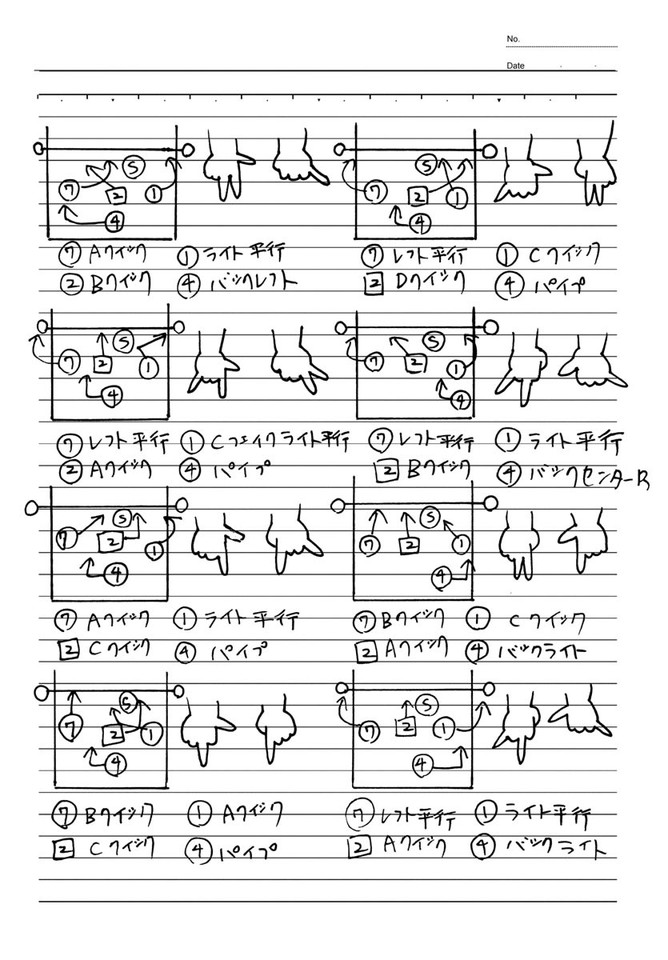 No.
Date
⑦ ② ⑤ ① ④
⑦ ② ⑤ ① ④
⑦ Aクイック ① ライト平行
② Bクイック ④ バックレフト
⑦ レフト平行 ① Cクイック
2 Dクイック ④ パイプ
⑦ 2 ⑤ ① ④
⑦ 2 ⑤ ① ④
⑦ レフト平行 ① Cフェイクライト平行
② Aクイック ④ パイプ
⑦ レフト平行 ① ライト平行
2 Bクイック ④ バックセンターR
⑦ 2 ⑤ ① ④
⑦ 2 ⑤ ① ④
⑦ Aクイック ① ライト平行
2 Cクイック ④ パイプ
⑦ Bクイック ① Cクイック
2 Aクイック ④ バックライト
⑦ 2 ⑤ ① ④
⑦ 2 ⑤ ① ④
⑦ Bクイック ① Aクイック
2 Cクイック ④ パイプ
⑦ レフト平行 ① ライト平行
2 Aクイック ④ バックライト